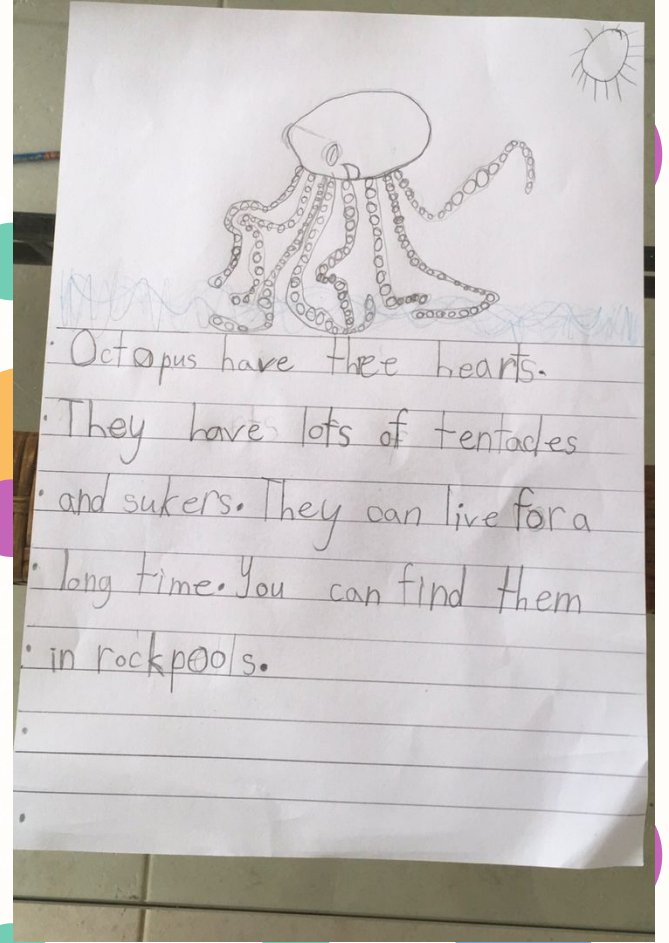 Octopus have thee hearts.
They have lots of tentacles
and sukers. They can live for a
long time. You can find them
in rockpools.